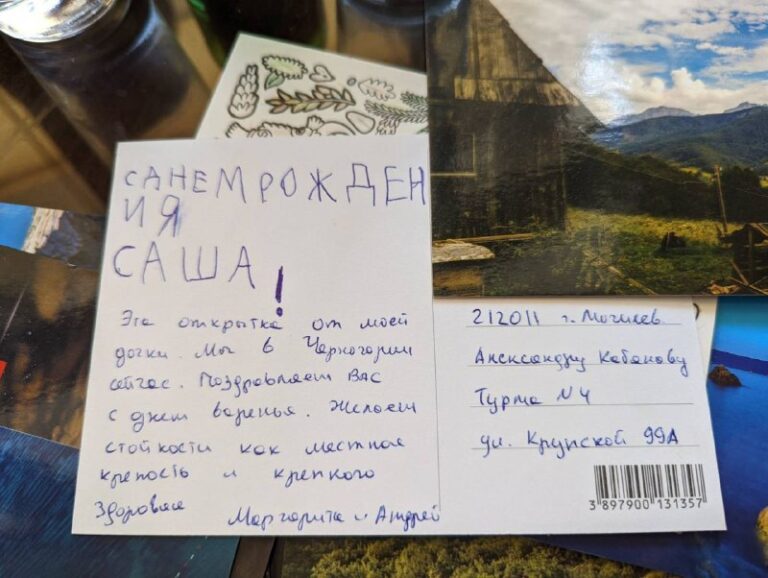 САНЕМ РОЖДЕН
ИЯ
САША!
Эта открытка от моей
дочки. Мы в Черногории
сейчас. Поздравляем Вас
с днем варенья. Желаем
стойкости как местная
крепость и крепкого
Здоровья
Маргарита и Андрей
212011 г. Могилев
Александру Кабанову
Турма N4
ул. Крупской 99А
3 897900 131357